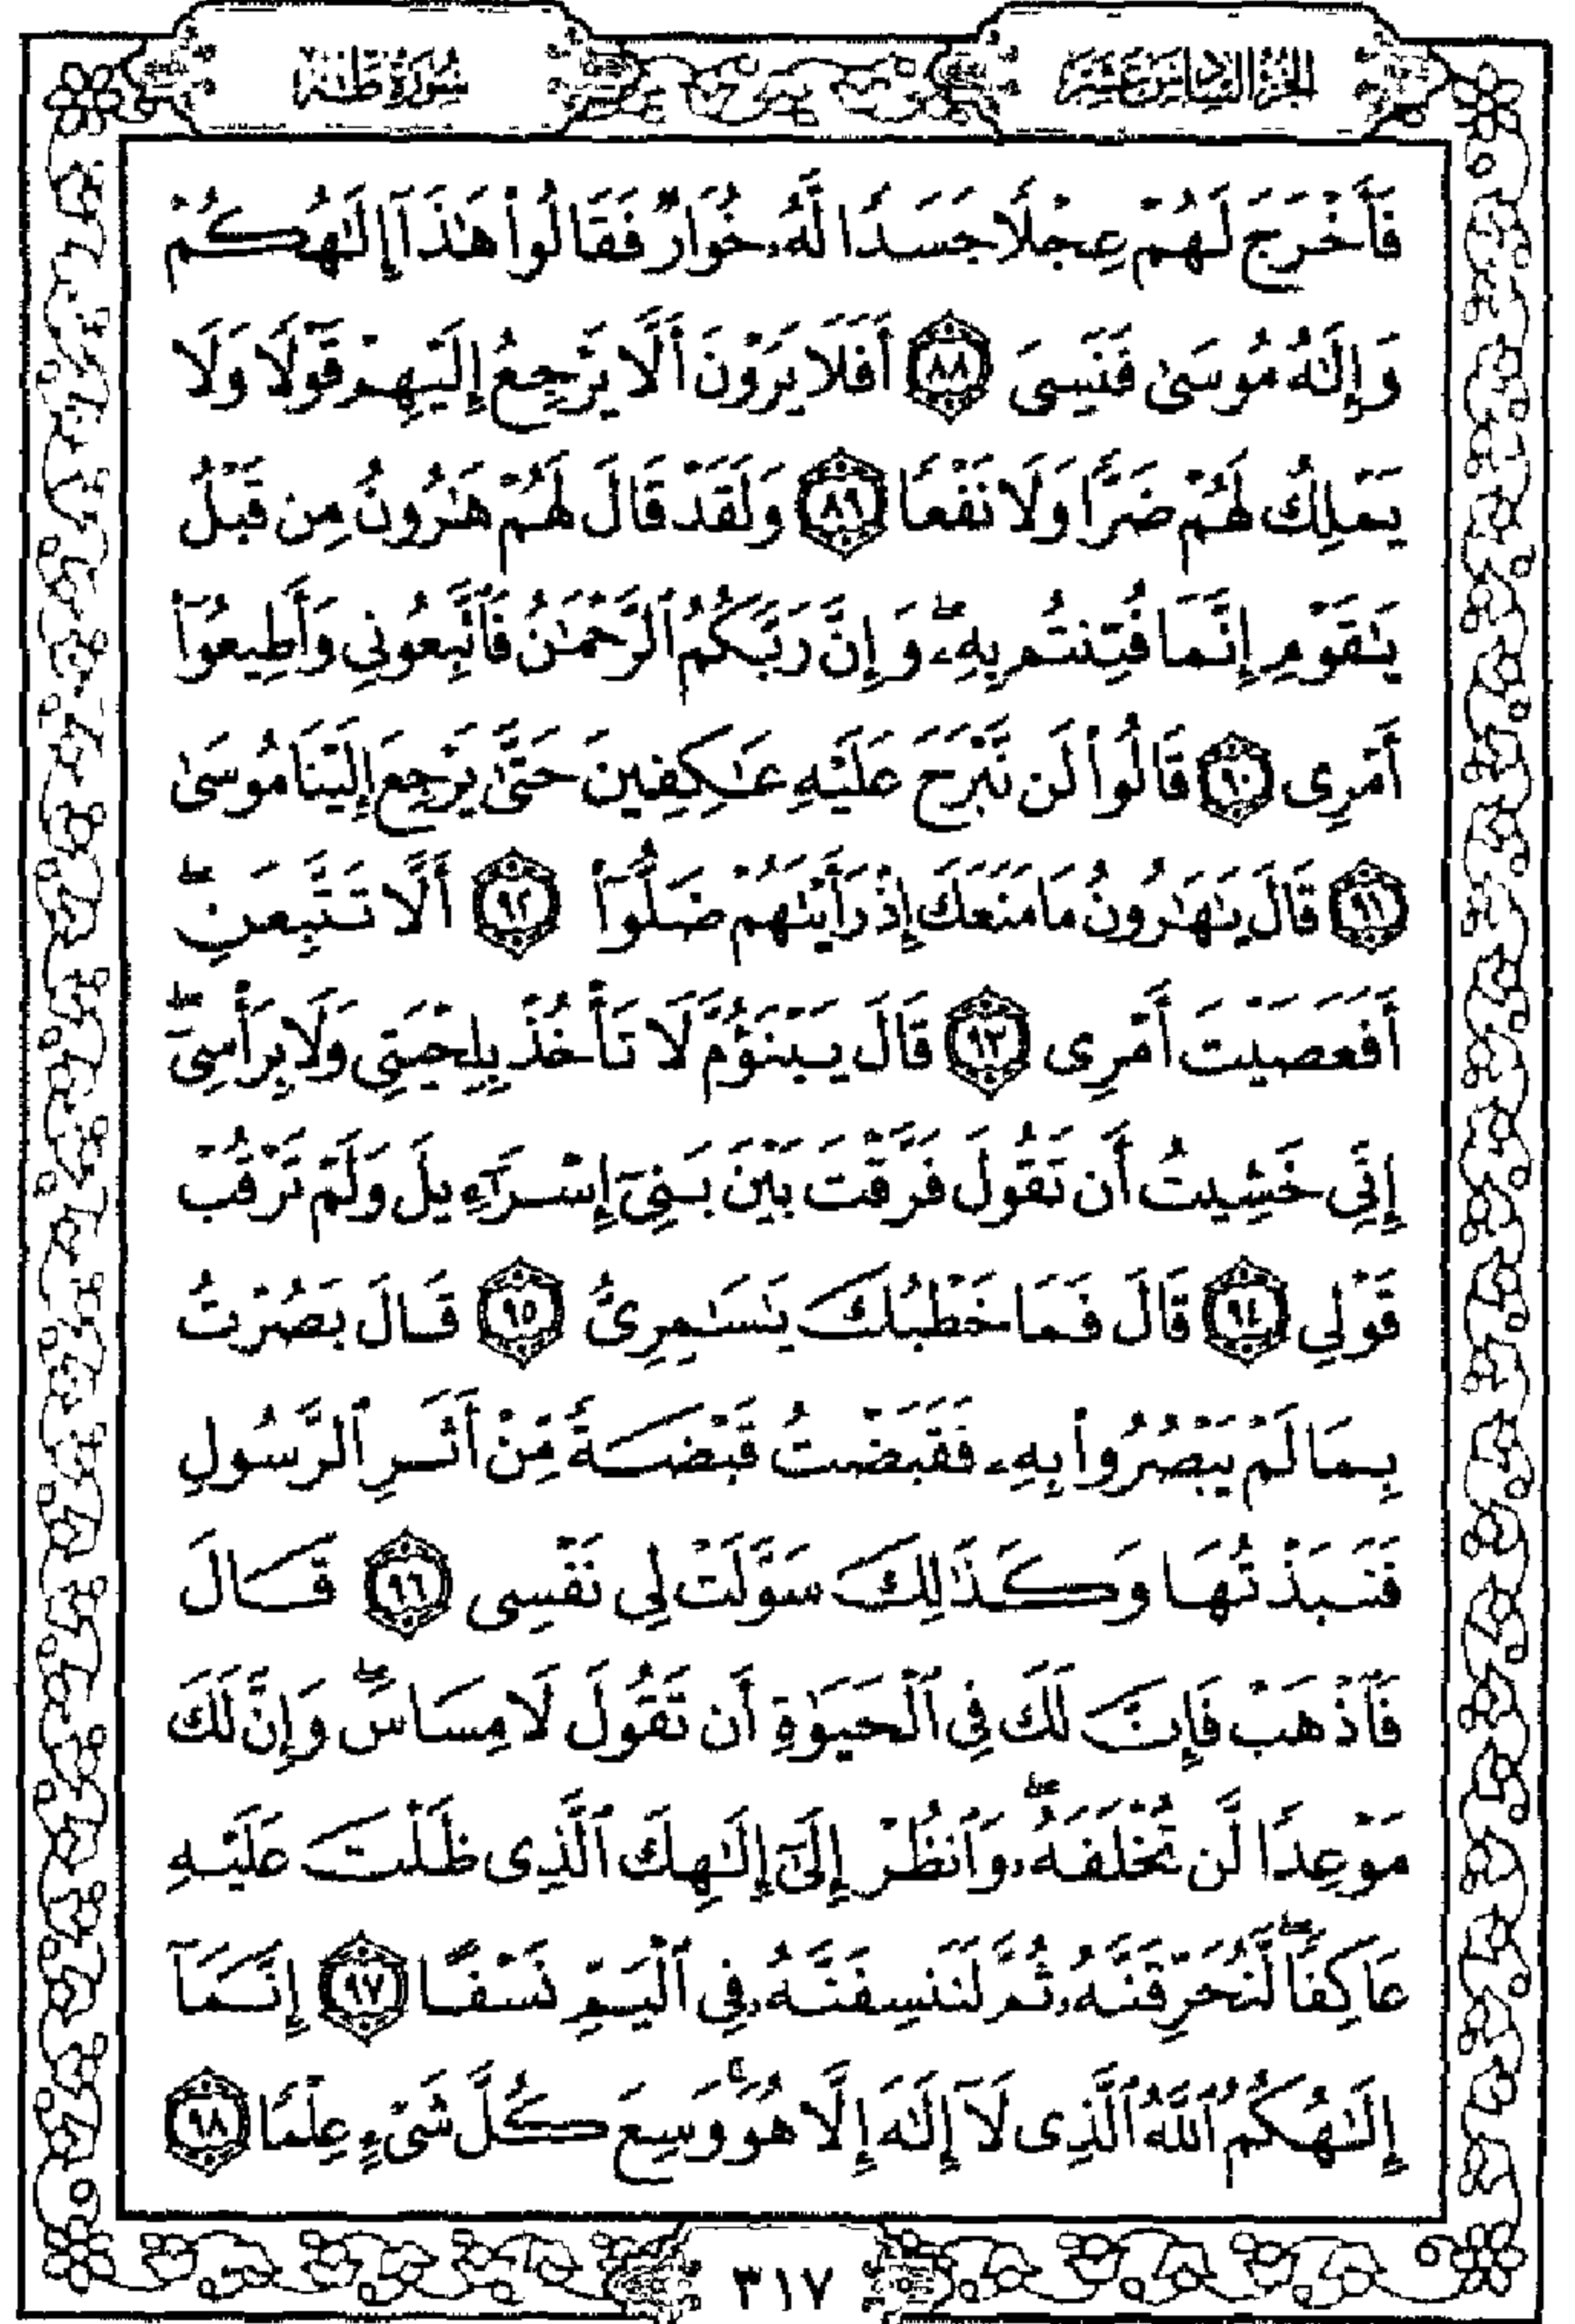 الجزء السادس عشر
سورة طه
فَأَخْرَجَ لَهُمْ عِجْلًا جَسَدًا لَّهُۥ خُوَارٌ فَقَالُوا۟ هَٰذَآ إِلَٰهُكُمْ
وَإِلَٰهُ مُوسَىٰ فَنَسِىَ ﴿٨٨﴾ أَفَلَا يَرَوْنَ أَلَّا يَرْجِعُ إِلَيْهِمْ قَوْلًا وَلَا
يَمْلِكُ لَهُمْ ضَرًّا وَلَا نَفْعًا ﴿٨٩﴾ وَلَقَدْ قَالَ لَهُمْ هَٰرُونُ مِن قَبْلُ
يَٰقَوْمِ إِنَّمَا فُتِنتُم بِهِۦ ۖ وَإِنَّ رَبَّكُمُ ٱلرَّحْمَٰنُ فَٱتَّبِعُونِى وَأَطِيعُوٓا۟
أَمْرِى ﴿٩٠﴾ قَالُوا۟ لَن نَّبْرَحَ عَلَيْهِ عَٰكِفِينَ حَتَّىٰ يَرْجِعَ إِلَيْنَا مُوسَىٰ
﴿٩١﴾ قَالَ يَٰهَٰرُونُ مَا مَنَعَكَ إِذْ رَأَيْتَهُمْ ضَلُّوٓا۟ ﴿٩٢﴾ أَلَّا تَتَّبِعَنِ ۖ
أَفَعَصَيْتَ أَمْرِى ﴿٩٣﴾ قَالَ يَبْنَؤُمَّ لَا تَأْخُذْ بِلِحْيَتِى وَلَا بِرَأْسِىٓ ۖ
إِنِّى خَشِيتُ أَن تَقُولَ فَرَّقْتَ بَيْنَ بَنِىٓ إِسْرَٰٓءِيلَ وَلَمْ تَرْقُبْ
قَوْلِى ﴿٩٤﴾ قَالَ فَمَا خَطْبُكَ يَٰسَٰمِرِىُّ ﴿٩٥﴾ قَالَ بَصُرْتُ
بِمَا لَمْ يَبْصُرُوا۟ بِهِۦ فَقَبَضْتُ قَبْضَةً مِّنْ أَثَرِ ٱلرَّسُولِ
فَنَبَذْتُهَا وَكَذَٰلِكَ سَوَّلَتْ لِى نَفْسِى ﴿٩٦﴾ قَالَ
فَٱذْهَبْ فَإِنَّ لَكَ فِى ٱلْحَيَوٰةِ أَن تَقُولَ لَا مِسَاسَ ۖ وَإِنَّ لَكَ
مَوْعِدًا لَّن تُخْلَفَهُۥ ۖ وَٱنظُرْ إِلَىٰٓ إِلَٰهِكَ ٱلَّذِى ظَلْتَ عَلَيْهِ
عَاكِفًا ۖ لَّنُحَرِّقَنَّهُۥ ثُمَّ لَنَنسِفَنَّهُۥ فِى ٱلْيَمِّ نَسْفًا ﴿٩٧﴾ إِنَّمَآ
إِلَٰهُكُمُ ٱللَّهُ ٱلَّذِى لَآ إِلَٰهَ إِلَّا هُوَ ۚ وَسِعَ كُلَّ شَىْءٍ عِلْمًا ﴿٩٨﴾
٣١٧